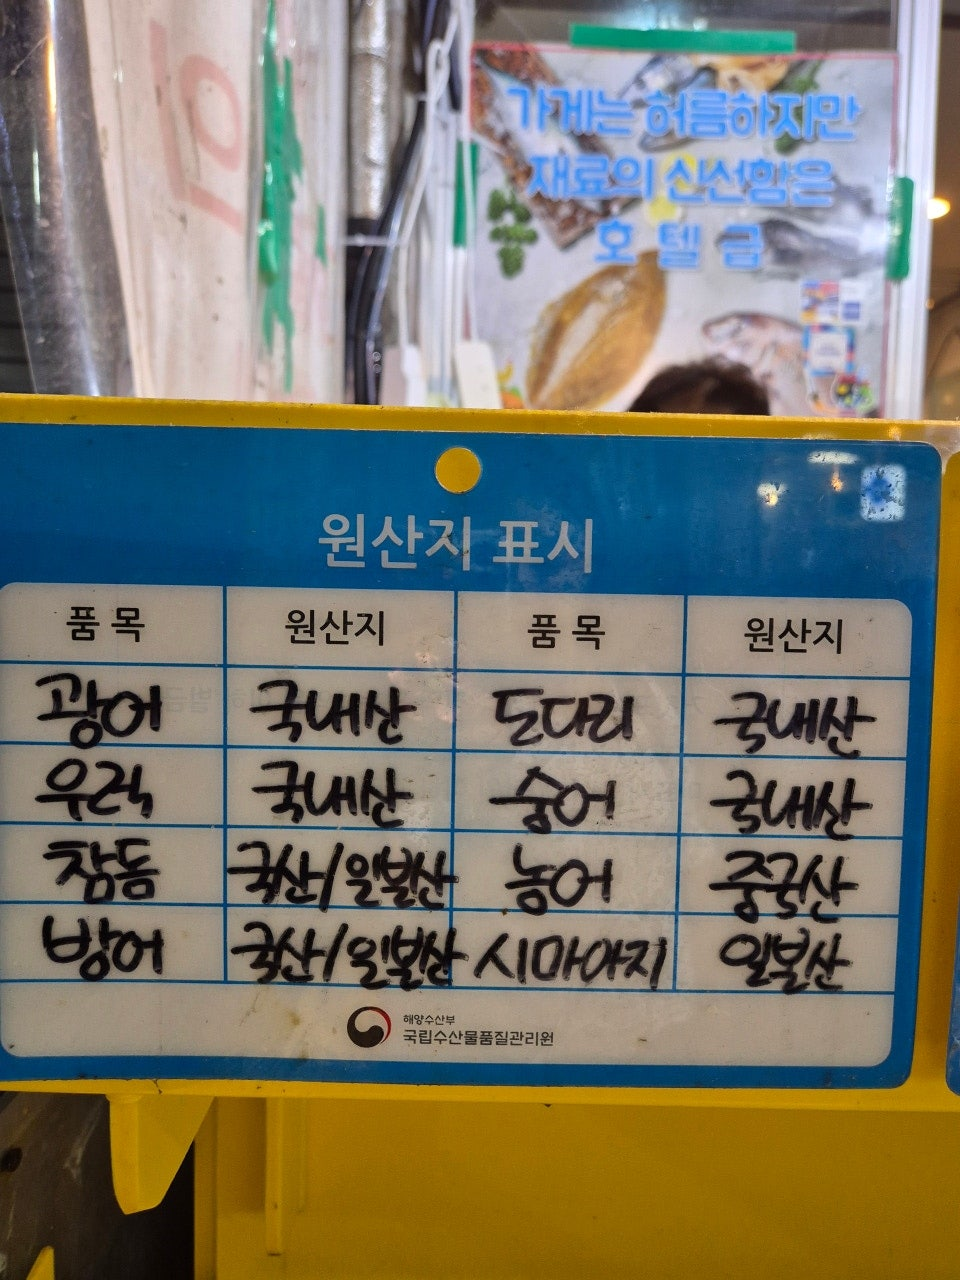 가게는 허름하지만
재료의 신선함은
호텔급
원산지 표시
품목 원산지 품목 원산지
광어 국내산 도다리 국내산
우럭 국내산 숭어 국내산
참돔 국산/일본산 농어 중국산
방어 국산/일본산 시마아지 일본산
해양수산부
국립수산물품질관리원